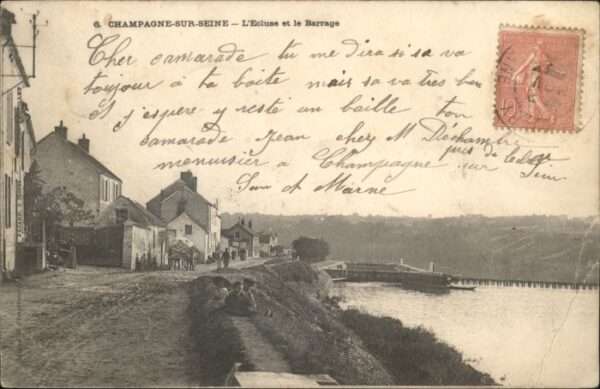 6. CHAMPAGNE-SUR-SEINE – L'Ecluse et le Barrage
Cher camarade tu me dira si sa va
toujour à ta boite mais sa va tres bien
et j'espere y resté un baille ton
camarade Jean chez M Déchambre
menuisier a Champagne sur Seine
près de
Sein et Marne